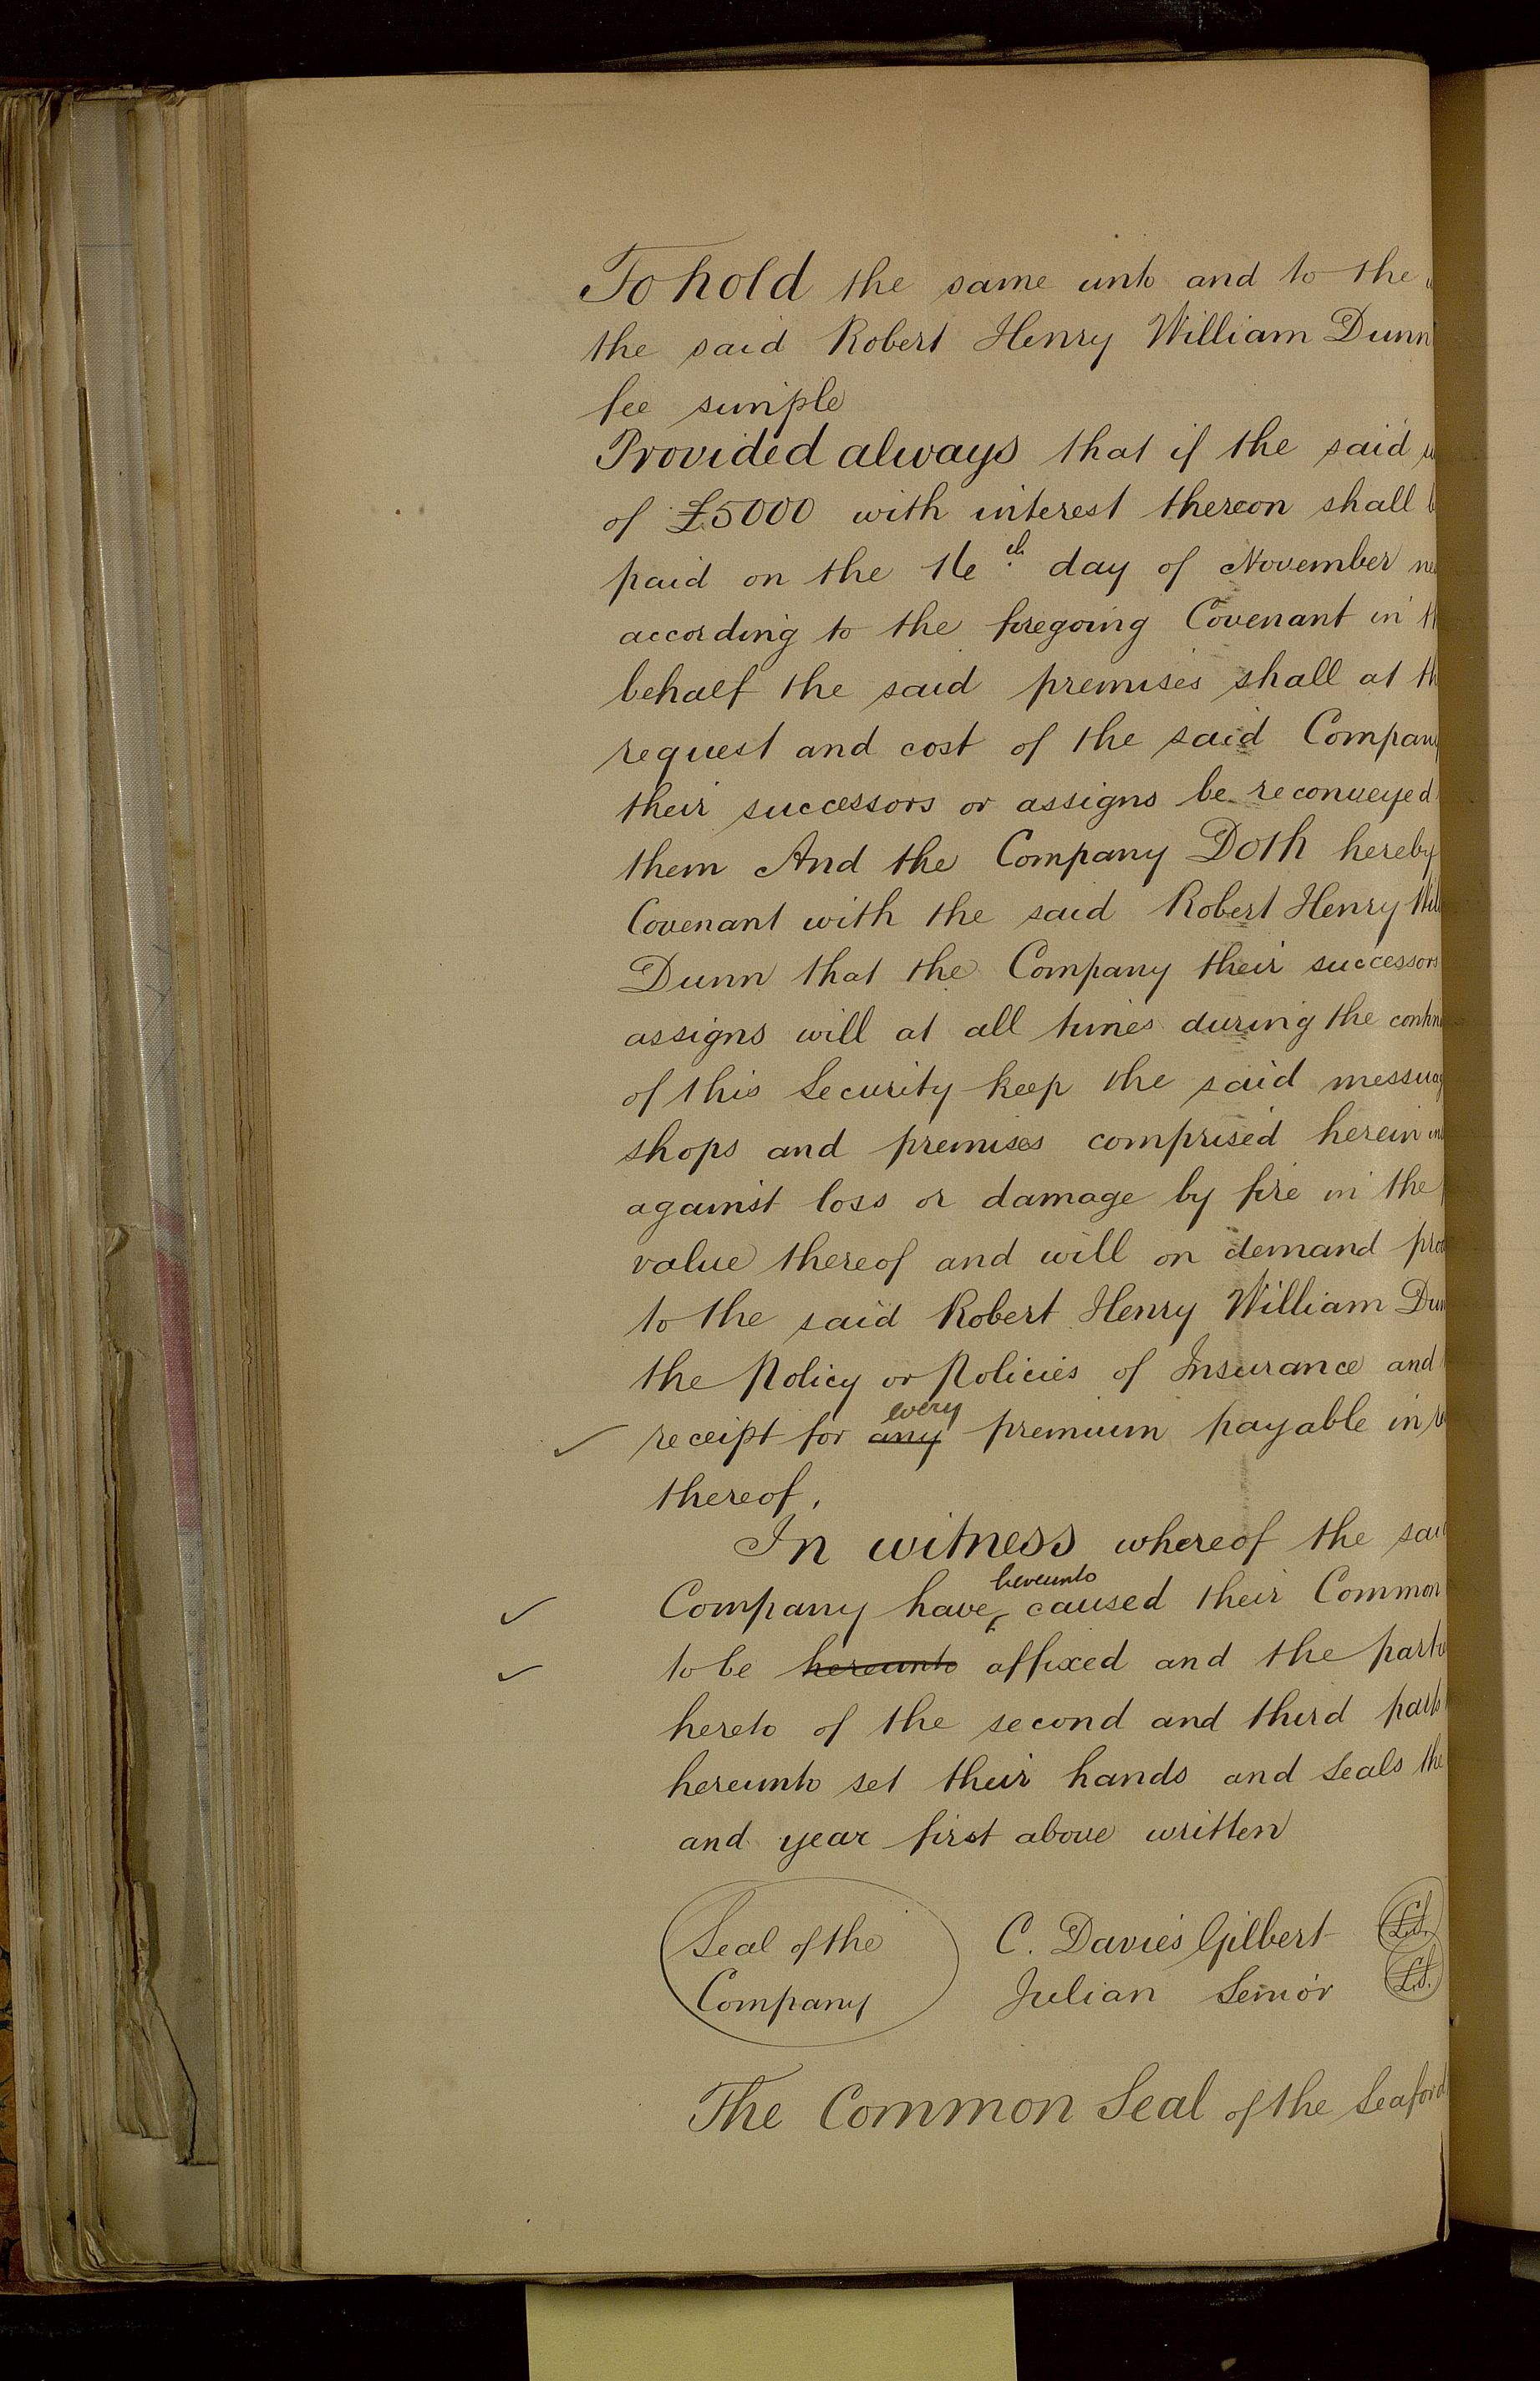 To hold the same unto and to the
the said Robert Henry William Dunn
fee simple
Provided always that if the said
of £5000 with interest thereon shall
paid on the 16th day of November
according to the foregoing Covenant in
behalf the said premises shall at
request and cost of the said Company
their successors or assigns be reconveyed
them And the Company Doth hereby
Covenant with the said Robert Henry Will
Dunn that the Company their successors
assigns will at all times during the contin
of this Security keep the said messuag
shops and premises comprised herein
against loss or damage by fire in the
value thereof and will on demand pro
to the said Robert Henry William Dun
the Policy or Policies of Insurance and
every
receipt for any premium payable in
thereof.
In witness whereof the said
hereunto
Company have caused their Common
to be hereunto affixed and the partie
hereto of the second and third parts
hereunto set their hands and seals the
and year first above written
Seal of the C. Davies Gilbert L.S.
Company Julian Senior L.S.
The Common Seal of the Seaford